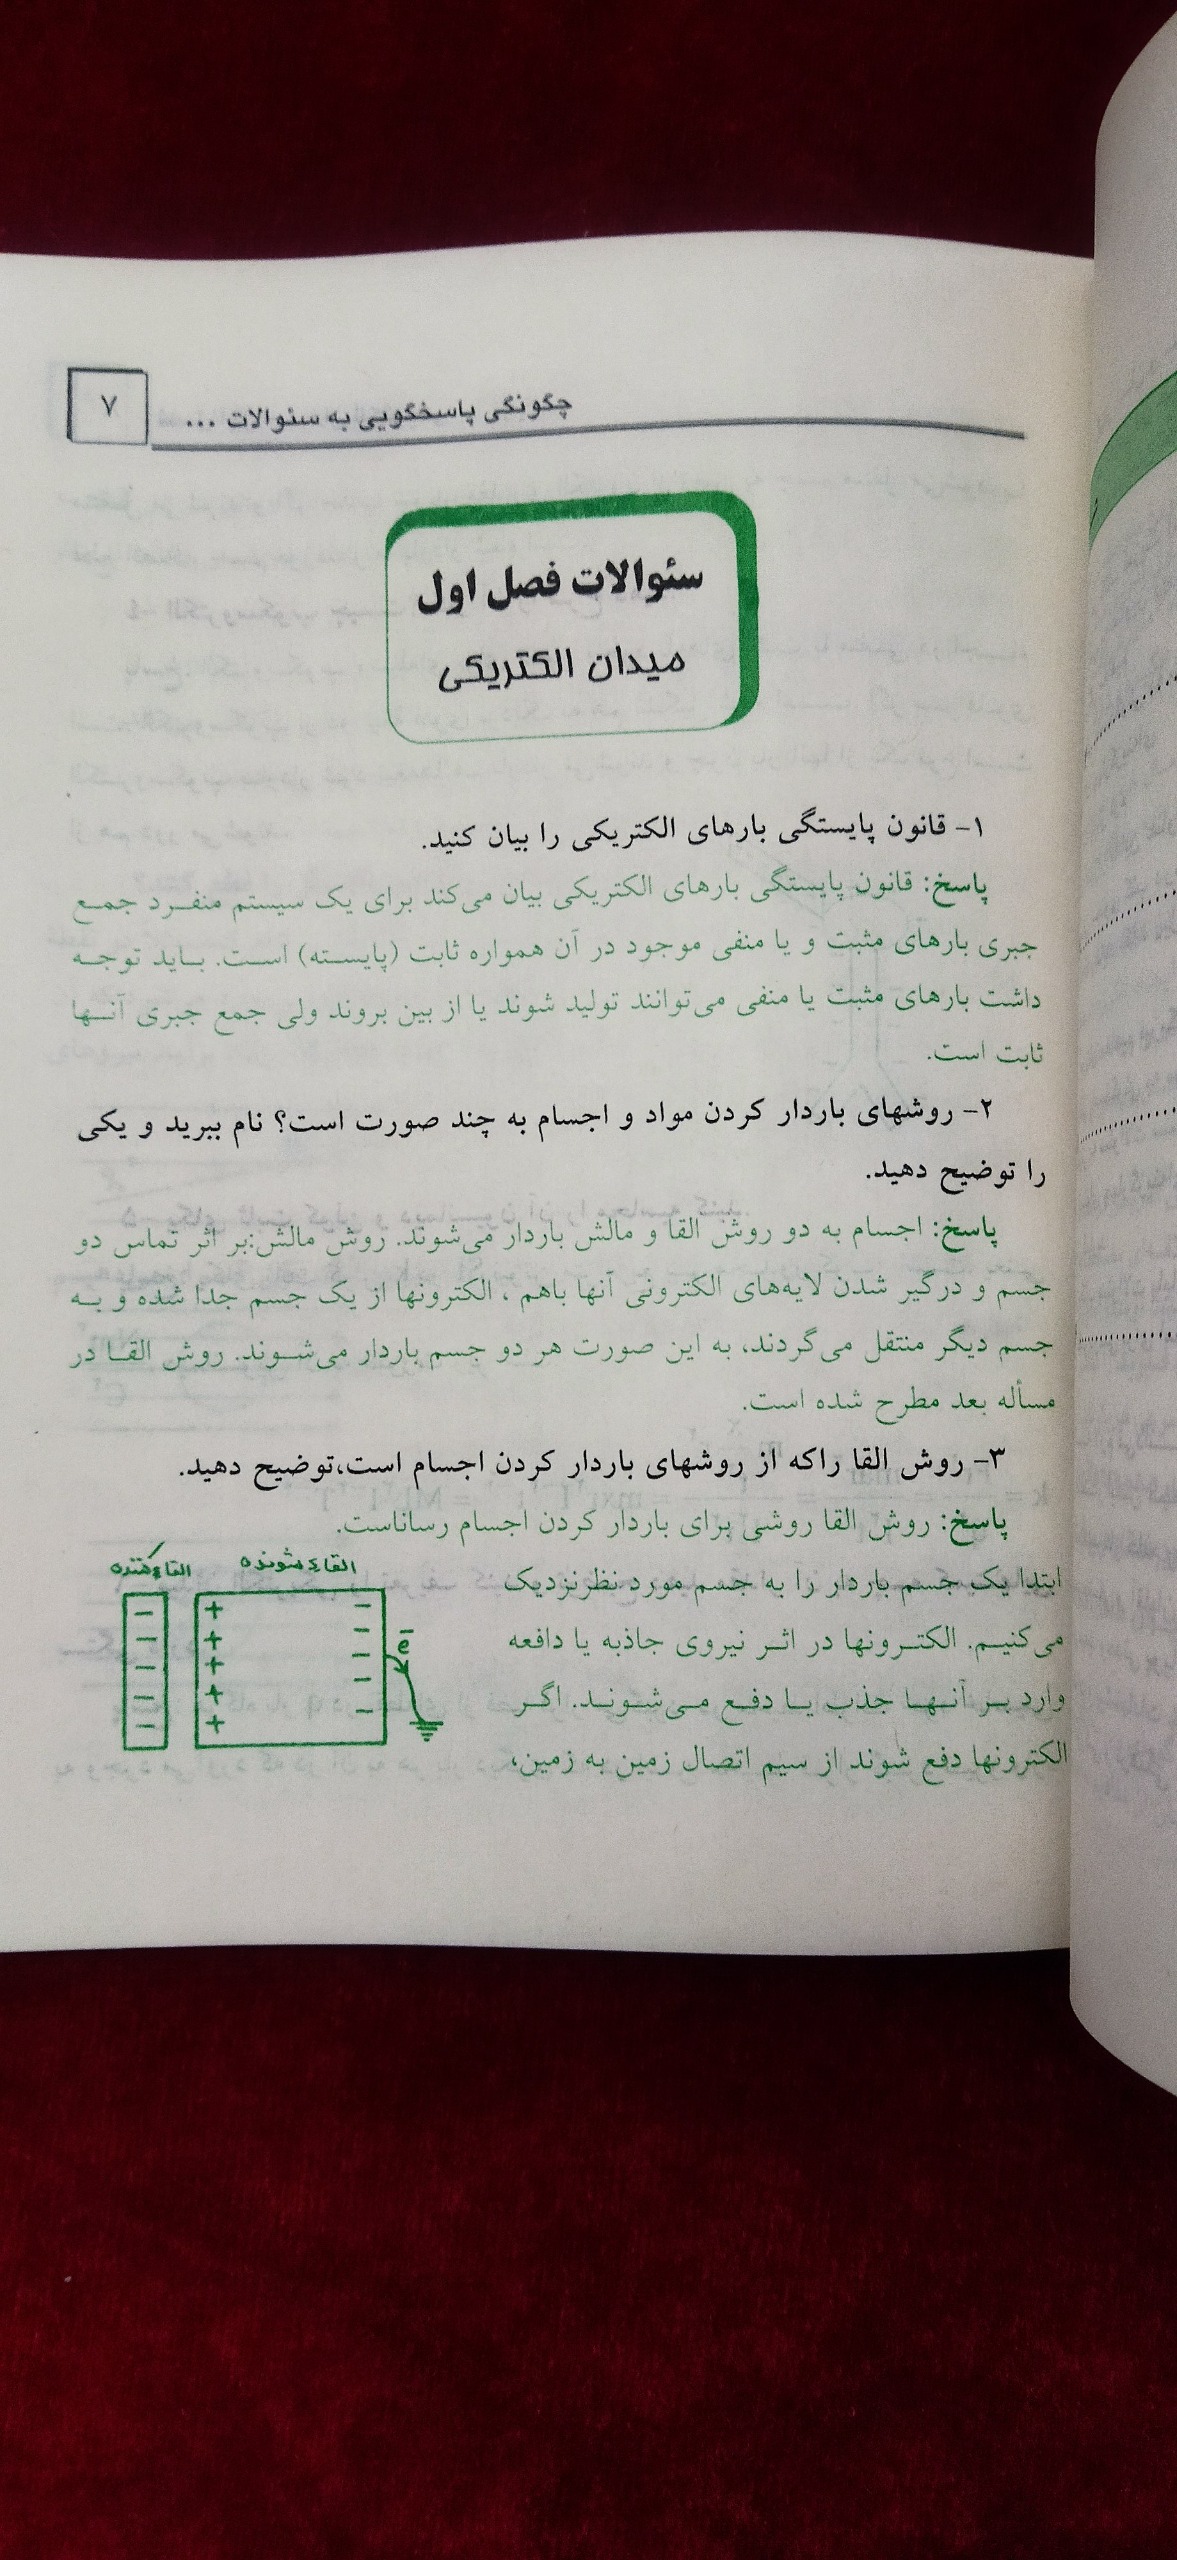 ۷
چگونگی پاسخگویی به سئوالات ...
سئوالات فصل اول
میدان الکتریکی
۱- قانون پایستگی بارهای الکتریکی را بیان کنید.
پاسخ: قانون پایستگی بارهای الکتریکی بیان می‌کند برای یک سیستم منفرد جمع
جبری بارهای مثبت و یا منفی موجود در آن همواره ثابت (پایسته) است. باید توجه
داشت بارهای مثبت یا منفی می‌توانند تولید شوند یا از بین بروند ولی جمع جبری آنها
ثابت است.
۲- روشهای باردار کردن مواد و اجسام به چند صورت است؟ نام ببرید و یکی
را توضیح دهید.
پاسخ: اجسام به دو روش القا و مالش باردار می‌شوند. روش مالش:بر اثر تماس دو
جسم و درگیر شدن لایه‌های الکترونی آنها باهم ، الکترونها از یک جسم جدا شده و به
جسم دیگر منتقل می‌گردند، به این صورت هر دو جسم باردار می‌شوند. روش القا در
مسأله بعد مطرح شده است.
۳- روش القا راکه از روشهای باردار کردن اجسام است،توضیح دهید.
پاسخ: روش القا روشی برای باردار کردن اجسام رساناست.
ابتدا یک جسم باردار را به جسم مورد نظرنزدیک
می‌کنیم. الکترونها در اثر نیروی جاذبه یا دافعه
وارد بر آنها جذب یا دفع می‌شوند. اگر
الکترونها دفع شوند از سیم اتصال زمین به زمین،
القاء شونده
القاء کننده
− + −
− + −
− + −
− + −
− + −
e̅